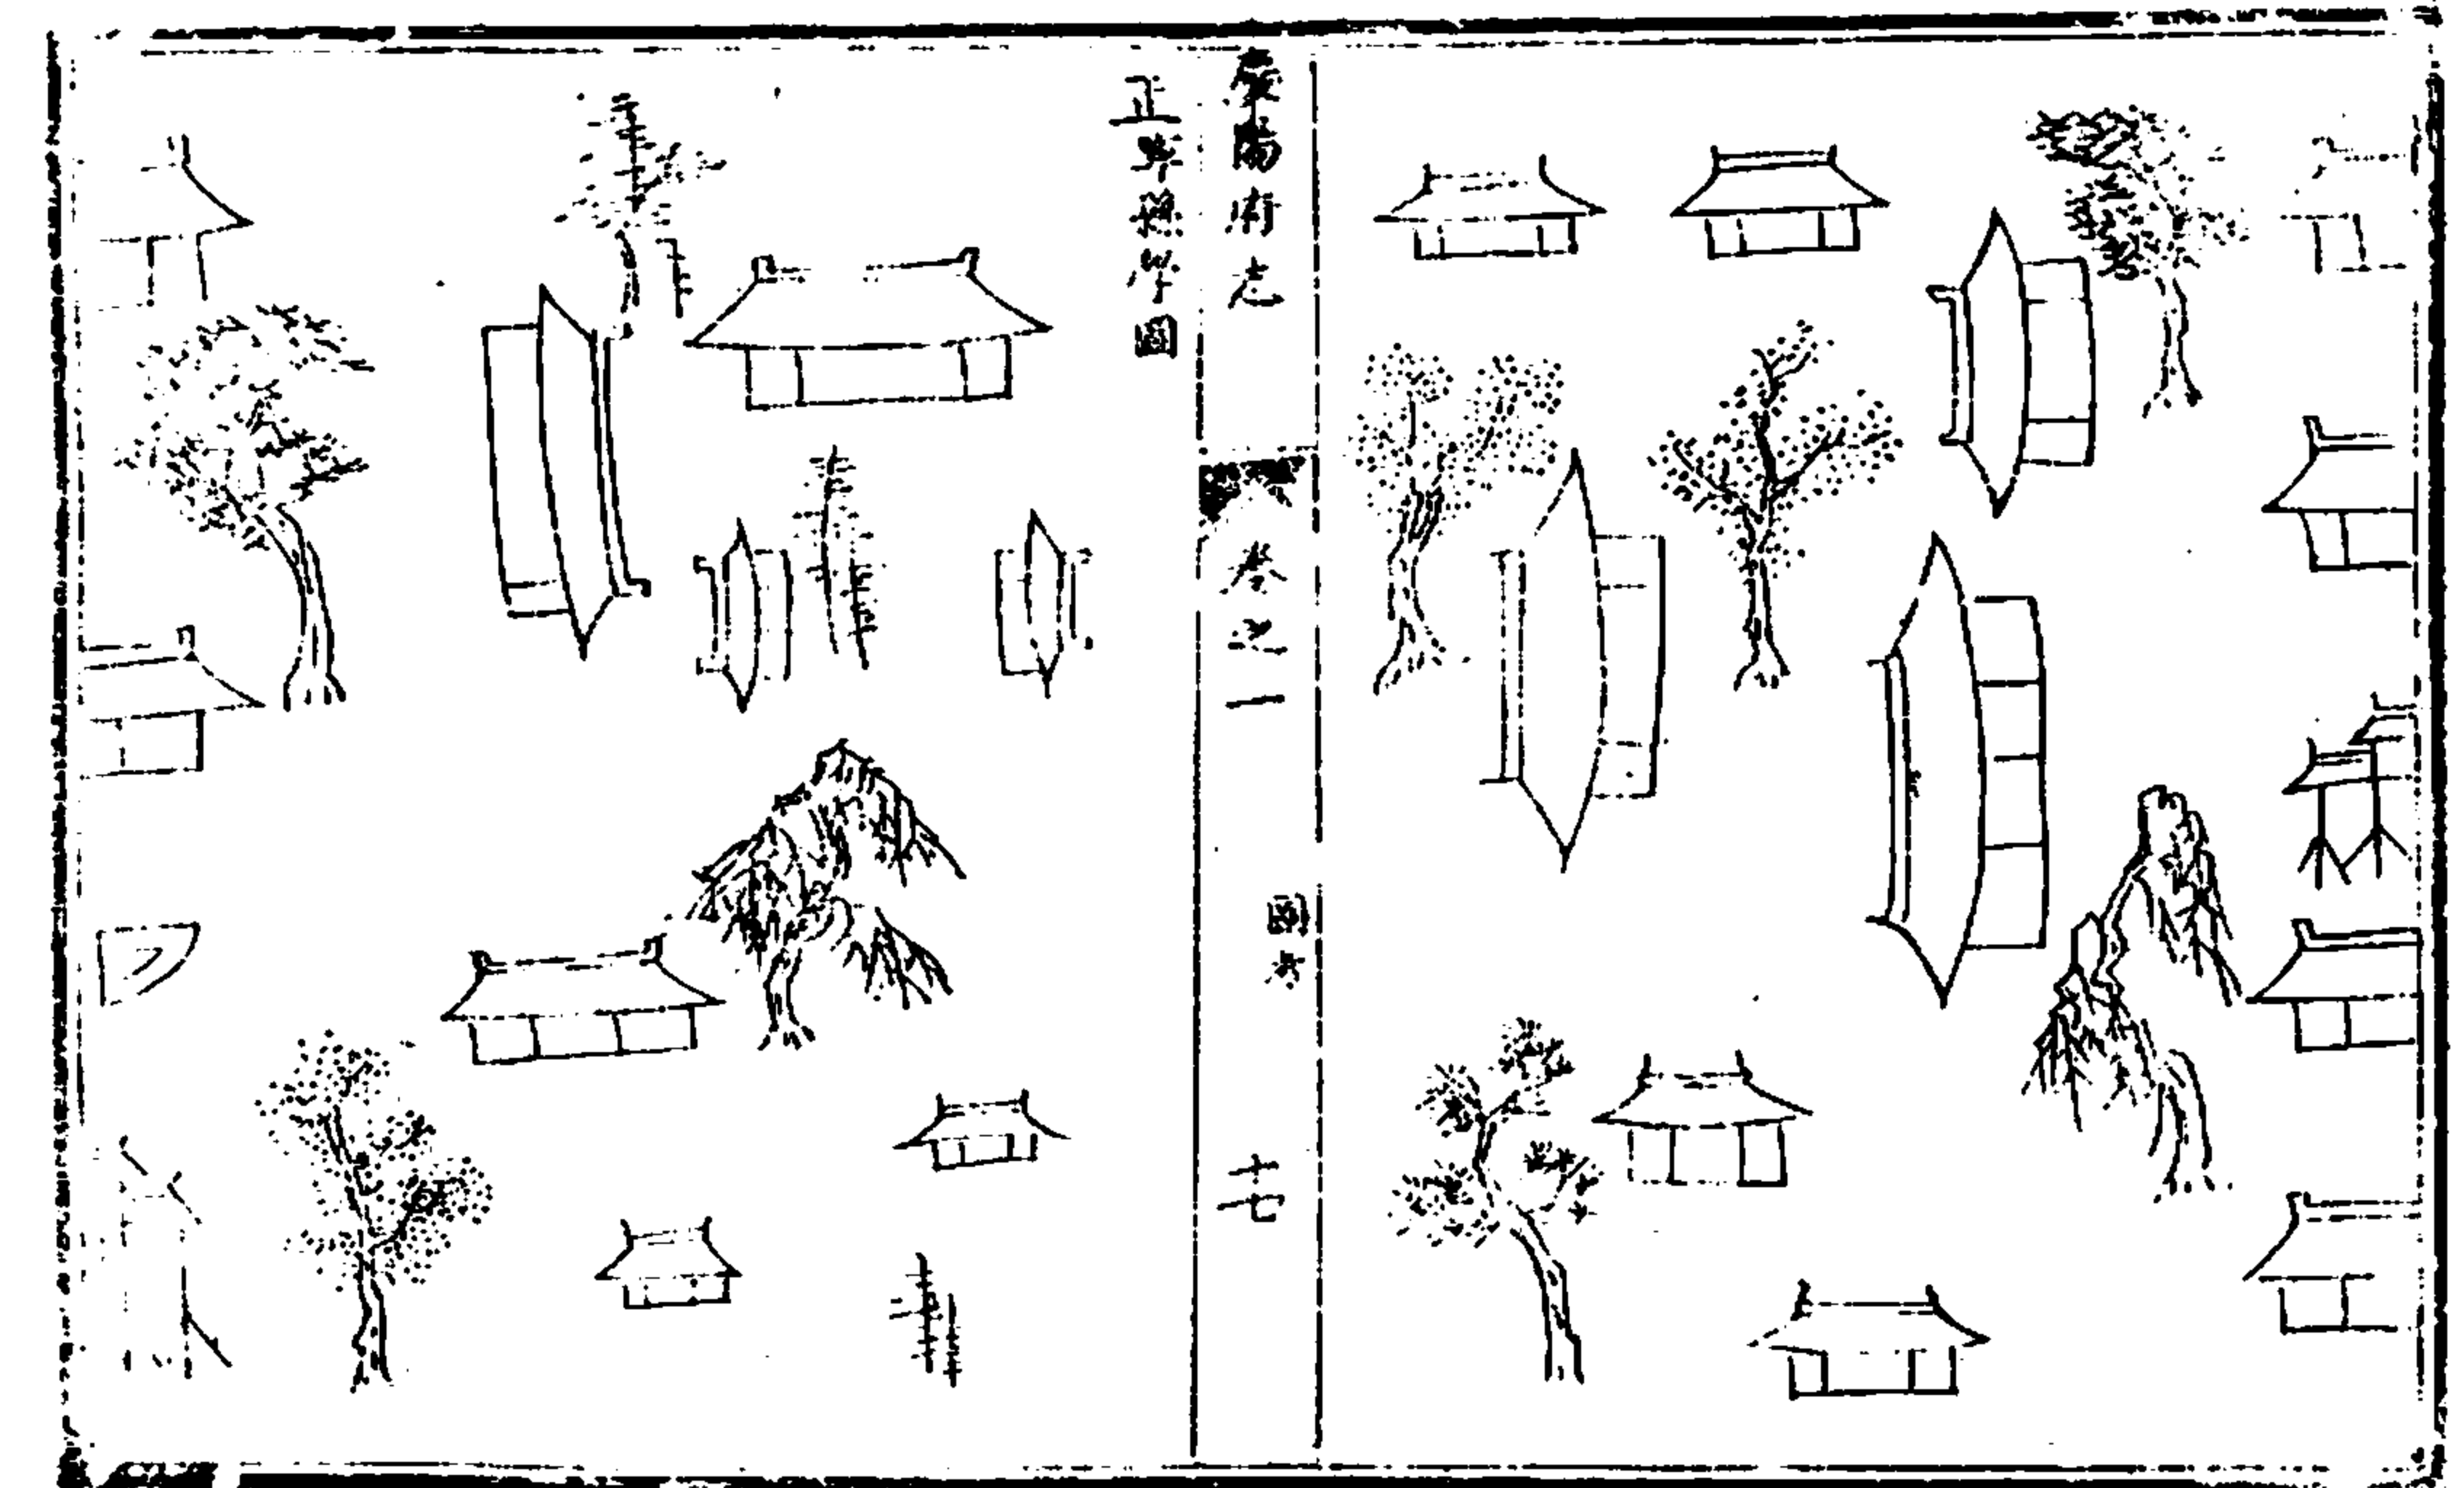 慶陽府志
卷之一
圖考
十七
正寧縣學圖